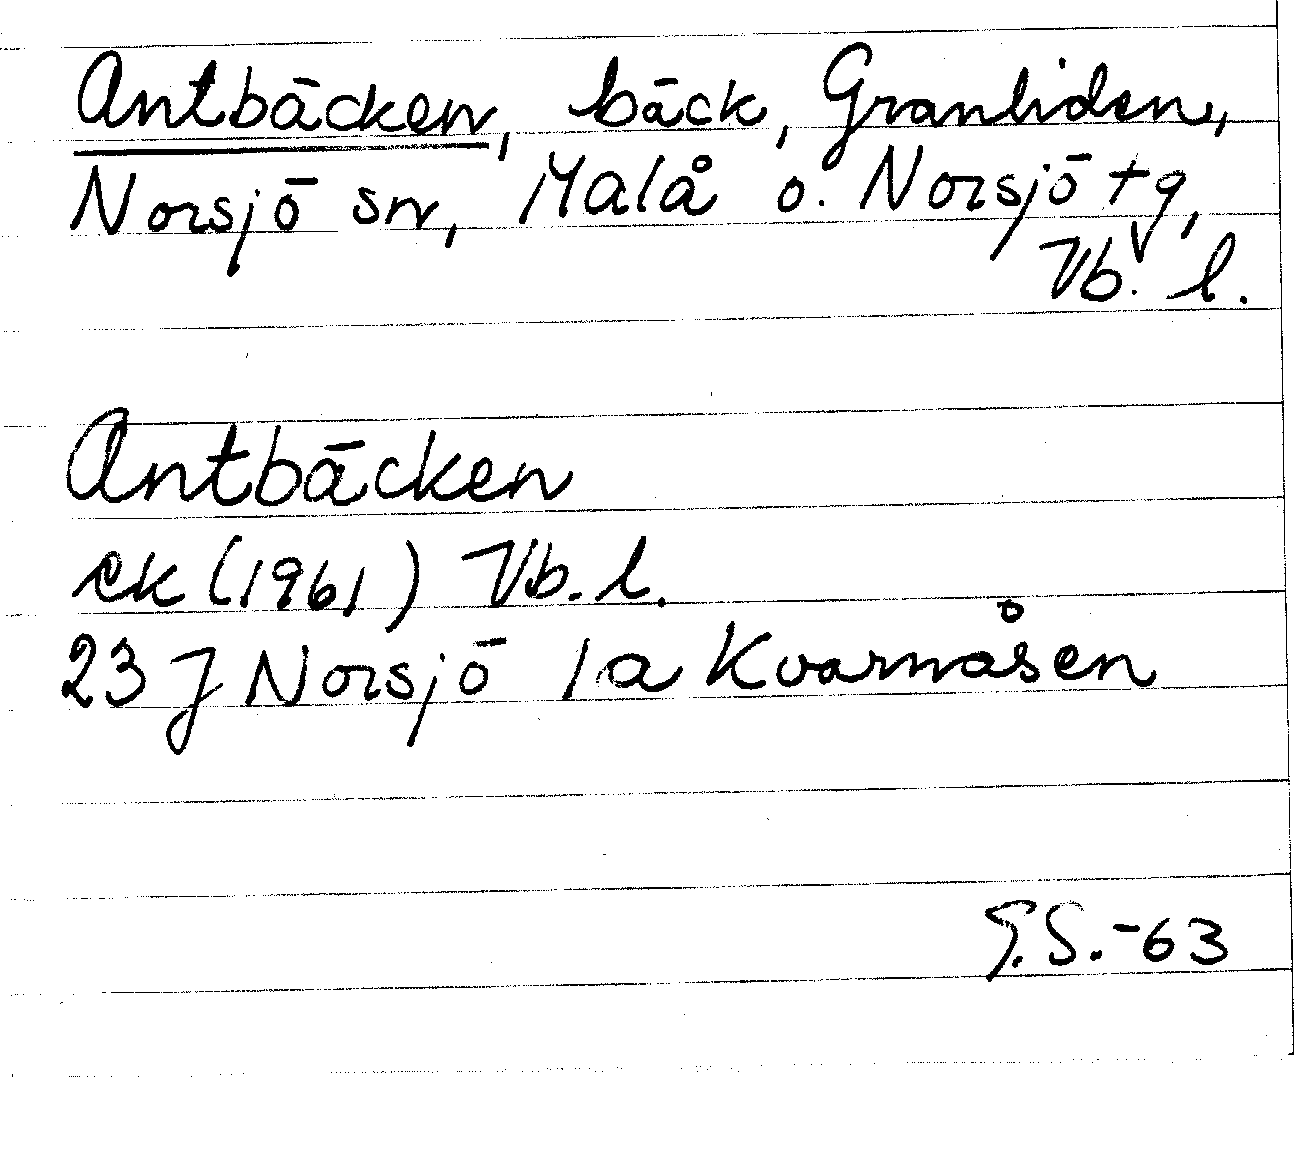 Antbäcken, bäck, Granliden,
Norsjö sn, Malå o. Norsjö tg,
Vb. l.
Antbäcken
ek (1961) Vb. l.
23 J Norsjö 1a Kvarnåsen
G.S.-63